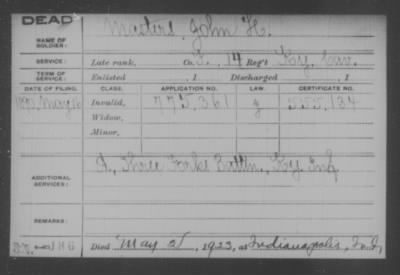 DEAD
NAME OF SOLDIER: Masters, John H.
SERVICE: Late rank, Co. 14 Reg't Ky. Cav.
TERM OF SERVICE: Enlisted , 1 Discharged , 1
DATE OF FILING. CLASS. APPLICATION NO. LAW. CERTIFICATE NO.
Invalid, 775,361 555,184
Widow,
Minor,
ADDITIONAL SERVICES: A, Three Forks Battln., Ky. Inf
REMARKS:
Died May 1923, at Indianapolis, Ind.